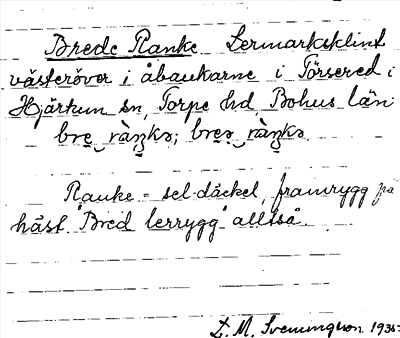 Brede Ranke Lermarksklint
västeröver i åbaukarne i Törsered i
Hjärtum sn, Torpe hd Bohus län
bre ràŋkə; breə ràŋkə.
Ranke = sel-däckel, framrygg på
häst. "Bred lerrygg" alltså.
L. M. Svenungsson. 1935